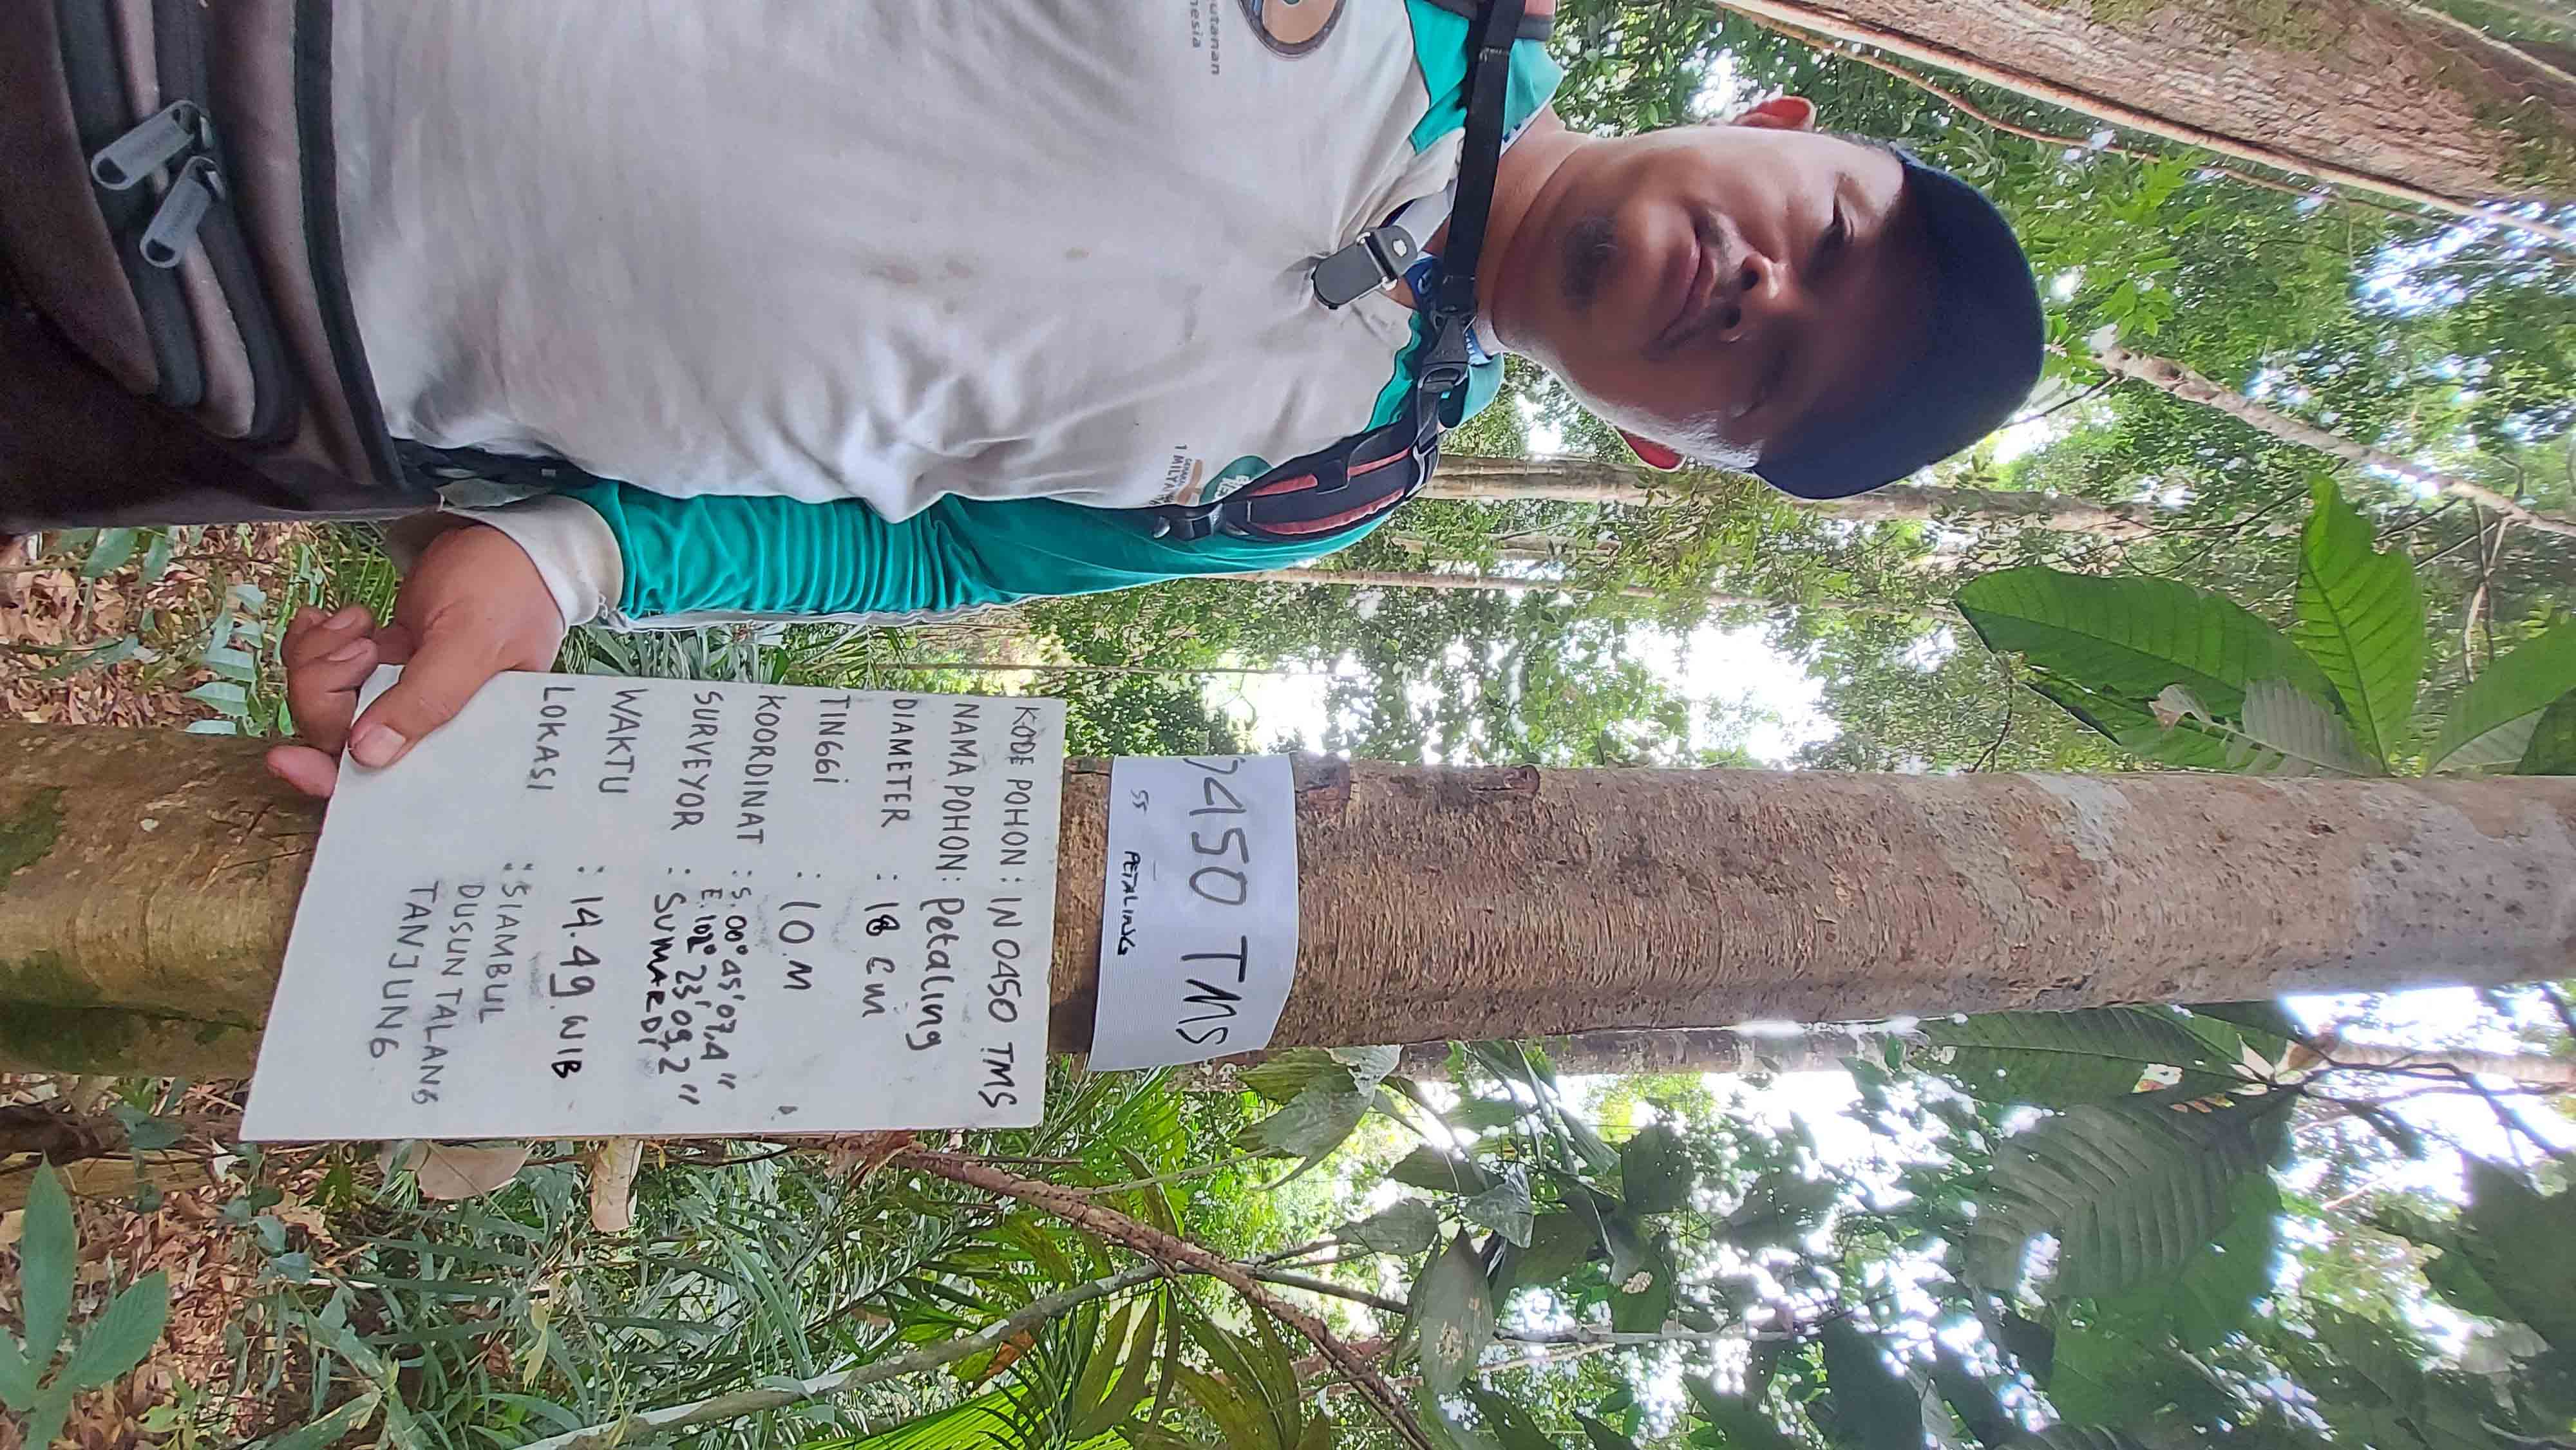 utanan
nesia
1 MILYA
0450 TMS
55 PETALING
KODE POHON : IN 0450 TMS
NAMA POHON : Petaling
DIAMETER : 18 cm
TINGGi : 10 M
KOORDINAT : S. 00° 45' 07,4"
E. 102° 23' 09,2"
SURVEYOR : SUMARDi
WAKTU : 14.49 WIB
LOKASI : SIAMBUL
DUSUN TALANG
TANJUNG